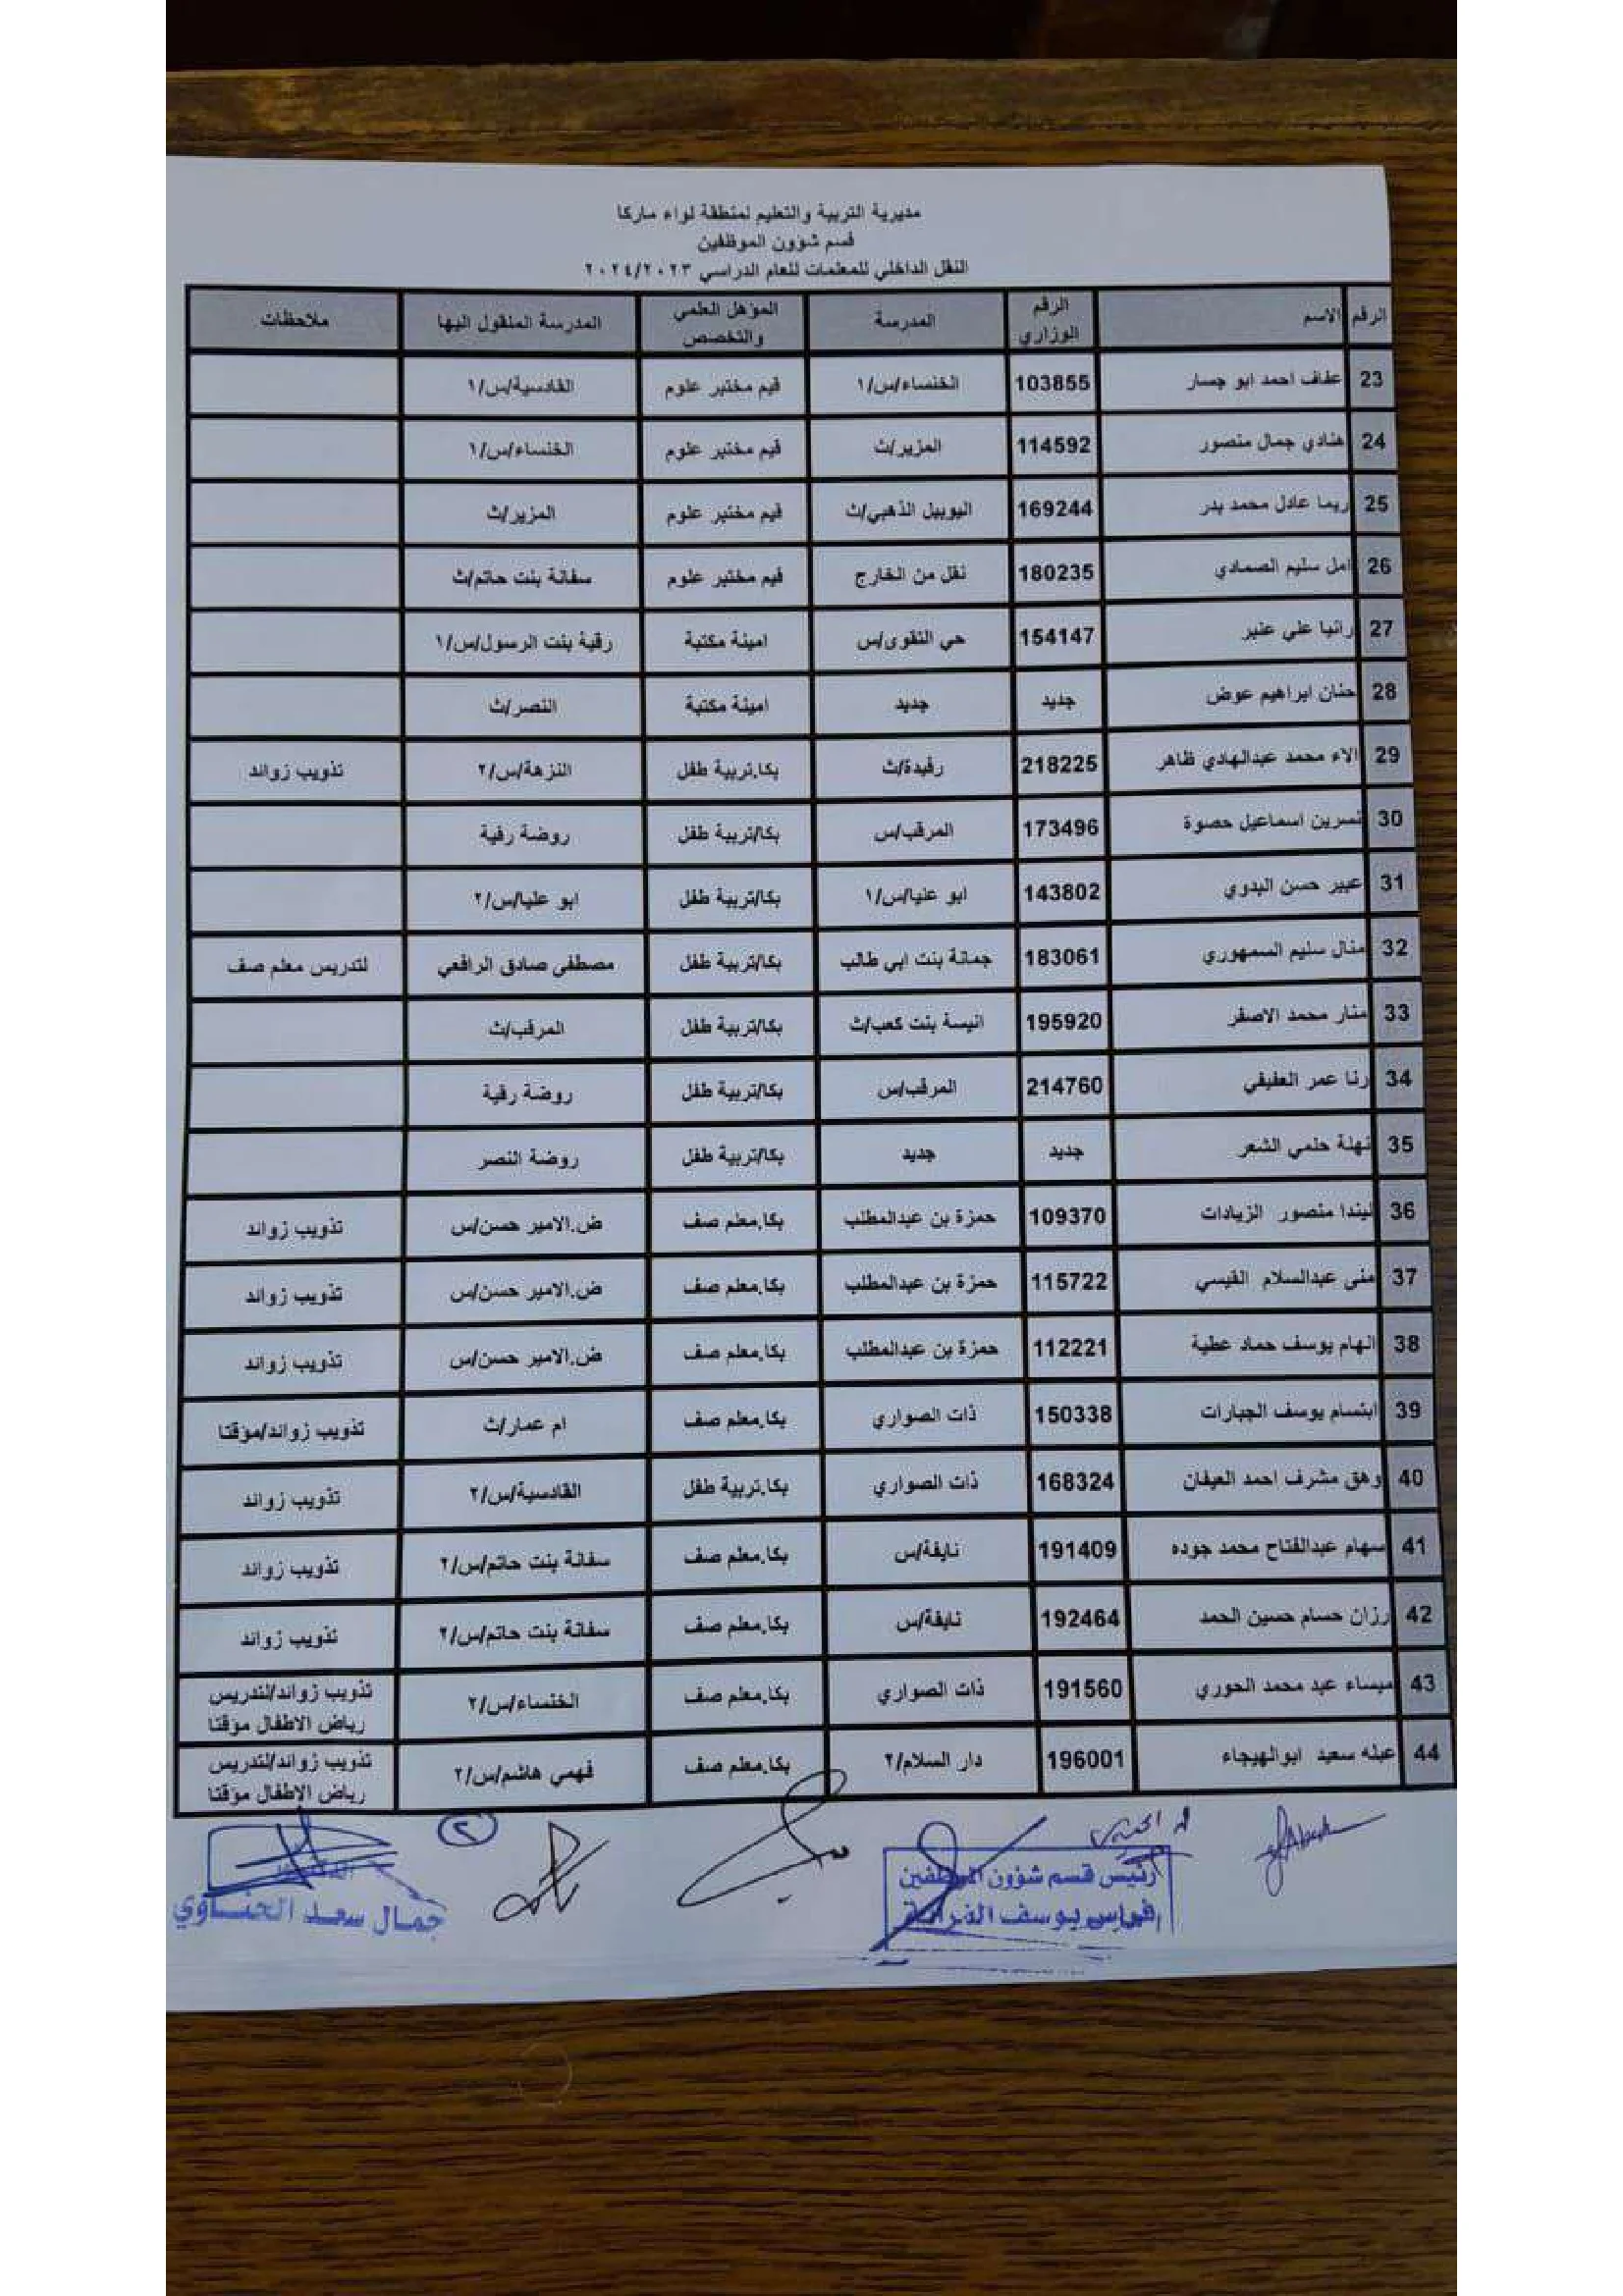 مديرية التربية والتعليم لمنطقة لواء ماركا
قسم شؤون الموظفين
النقل الداخلي للمعلمات للعام الدراسي ٢٠٢٤/٢٠٢٣
الرقم الاسم الرقم الوزاري المدرسة المؤهل العلمي والتخصص المدرسة المنقول اليها ملاحظات
23 عفاف احمد ابو جسار 103855 الخنساء/س/١ قيم مختبر علوم القادسية/س/١
24 هنادي جمال منصور 114592 المزير/ث قيم مختبر علوم الخنساء/س/١
25 ريما عادل محمد بدر 169244 اليوبيل الذهبي/ث قيم مختبر علوم المزير/ث
26 امل سليم الصمادي 180235 نقل من الخارج قيم مختبر علوم سفانة بنت حاتم/ث
27 رانيا علي عنبر 154147 حي التقوى/س امينة مكتبة رقية بنت الرسول/س/١
28 حنان ابراهيم عوض جديد جديد امينة مكتبة النصر/ث
29 الاء محمد عبدالهادي ظاهر 218225 رفيدة/ث بكا.تربية طفل النزهة/س/٢ تذويب زوائد
30 نسرين اسماعيل حصوة 173496 المرقب/س بكا/تربية طفل روضة رقية
31 عبير حسن البدوي 143802 ابو عليا/س/١ بكا/تربية طفل ابو عليا/س/٢
32 منال سليم السمهوري 183061 جمانة بنت ابي طالب بكا/تربية طفل مصطفى صادق الرافعي لتدريس معلم صف
33 منار محمد الاصفر 195920 انيسة بنت كعب/ث بكا/تربية طفل المرقب/ث
34 رنا عمر العفيفي 214760 المرقب/س بكا/تربية طفل روضة رقية
35 نهلة حلمي الشعر جديد جديد بكا/تربية طفل روضة النصر
36 ليندا منصور الزيادات 109370 حمزة بن عبدالمطلب بكا.معلم صف ض.الامير حسن/س تذويب زوائد
37 منى عبدالسلام القيسي 115722 حمزة بن عبدالمطلب بكا.معلم صف ض.الامير حسن/س تذويب زوائد
38 الهام يوسف حماد عطية 112221 حمزة بن عبدالمطلب بكا.معلم صف ض.الامير حسن/س تذويب زوائد
39 ابتسام يوسف الجبارات 150338 ذات الصواري بكا.معلم صف ام عمار/ث تذويب زوائد/مؤقتا
40 وهق مشرف احمد العيفان 168324 ذات الصواري بكا.تربية طفل القادسية/س/٢ تذويب زوائد
41 سهام عبدالفتاح محمد جوده 191409 نايفة/س بكا.معلم صف سفانة بنت حاتم/س/٢ تذويب زوائد
42 رزان حسام حسين الحمد 192464 نايفة/س بكا.معلم صف سفانة بنت حاتم/س/٢ تذويب زوائد
43 ميساء عيد محمد الحوري 191560 ذات الصواري بكا.معلم صف الخنساء/س/٢ تذويب زوائد/لتدريس رياض الاطفال مؤقتا
44 عبله سعيد ابوالهيجاء 196001 دار السلام/٢ بكا.معلم صف فهمي هاشم/س/٢ تذويب زوائد/لتدريس رياض الاطفال مؤقتا
٢
رئيس قسم شؤون الموظفين
فراس يوسف
جمال سعد الحناوي